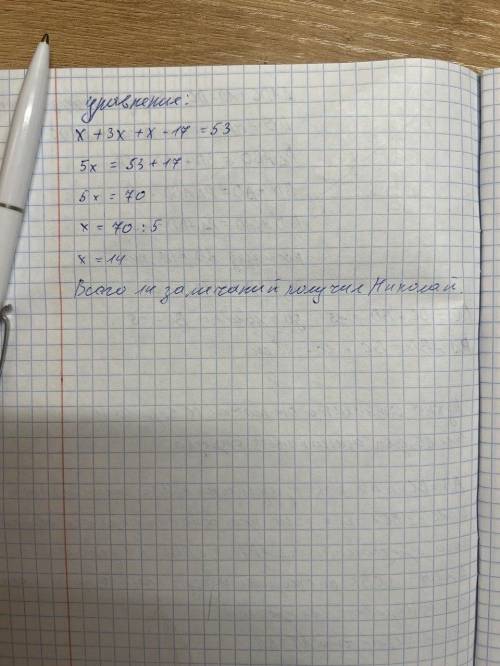 уравнение:
x + 3x + x - 17 = 53
5x = 53 + 17
5x = 70
x = 70 : 5
x = 14
Всего 14 замечаний получил Николай